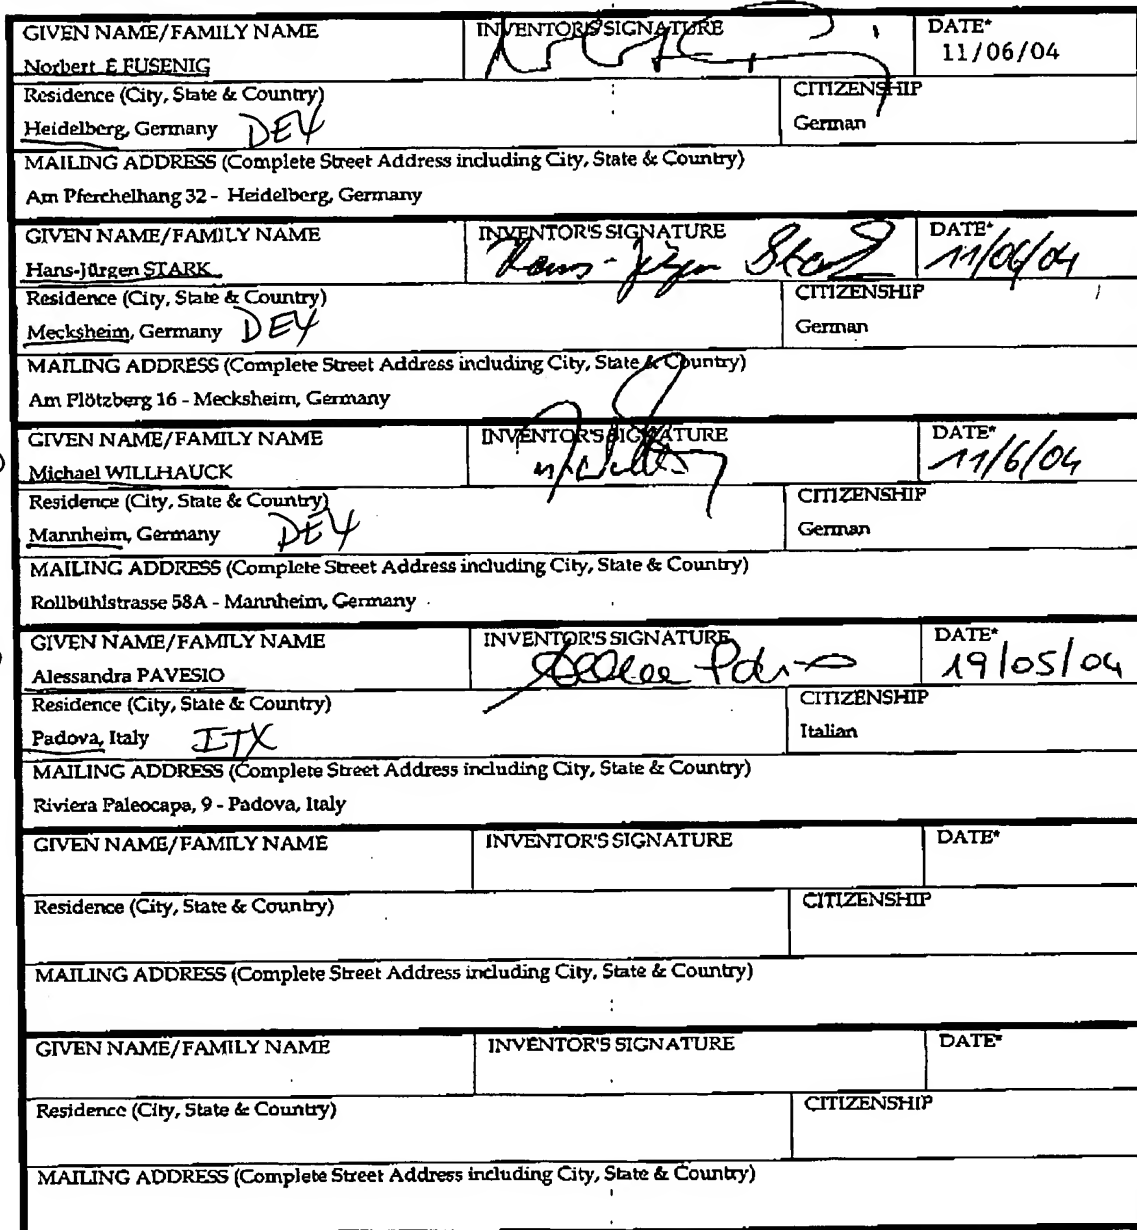 GIVEN NAME/FAMILY NAME INVENTOR'S SIGNATURE DATE*
Norbert E FUSENIG 11/06/04
Residence (City, State & Country) CITIZENSHIP
Heidelberg, Germany DEY German
MAILING ADDRESS (Complete Street Address including City, State & Country)
Am Pferchelhang 32 - Heidelberg, Germany
GIVEN NAME/FAMILY NAME INVENTOR'S SIGNATURE DATE*
Hans-Jürgen STARK Hans-Jürgen Stark 11/06/04
Residence (City, State & Country) CITIZENSHIP
Mecksheim, Germany DEY German
MAILING ADDRESS (Complete Street Address including City, State & Country)
Am Plötzberg 16 - Mecksheim, Germany
GIVEN NAME/FAMILY NAME INVENTOR'S SIGNATURE DATE*
Michael WILLHAUCK 11/6/04
Residence (City, State & Country) CITIZENSHIP
Mannheim, Germany DEY German
MAILING ADDRESS (Complete Street Address including City, State & Country)
Rollbühlstrasse 58A - Mannheim, Germany
GIVEN NAME/FAMILY NAME INVENTOR'S SIGNATURE DATE*
Alessandra PAVESIO 19/05/04
Residence (City, State & Country) CITIZENSHIP
Padova, Italy ITX Italian
MAILING ADDRESS (Complete Street Address including City, State & Country)
Riviera Paleocapa, 9 - Padova, Italy
GIVEN NAME/FAMILY NAME INVENTOR'S SIGNATURE DATE*
Residence (City, State & Country) CITIZENSHIP
MAILING ADDRESS (Complete Street Address including City, State & Country)
GIVEN NAME/FAMILY NAME INVENTOR'S SIGNATURE DATE*
Residence (City, State & Country) CITIZENSHIP
MAILING ADDRESS (Complete Street Address including City, State & Country)